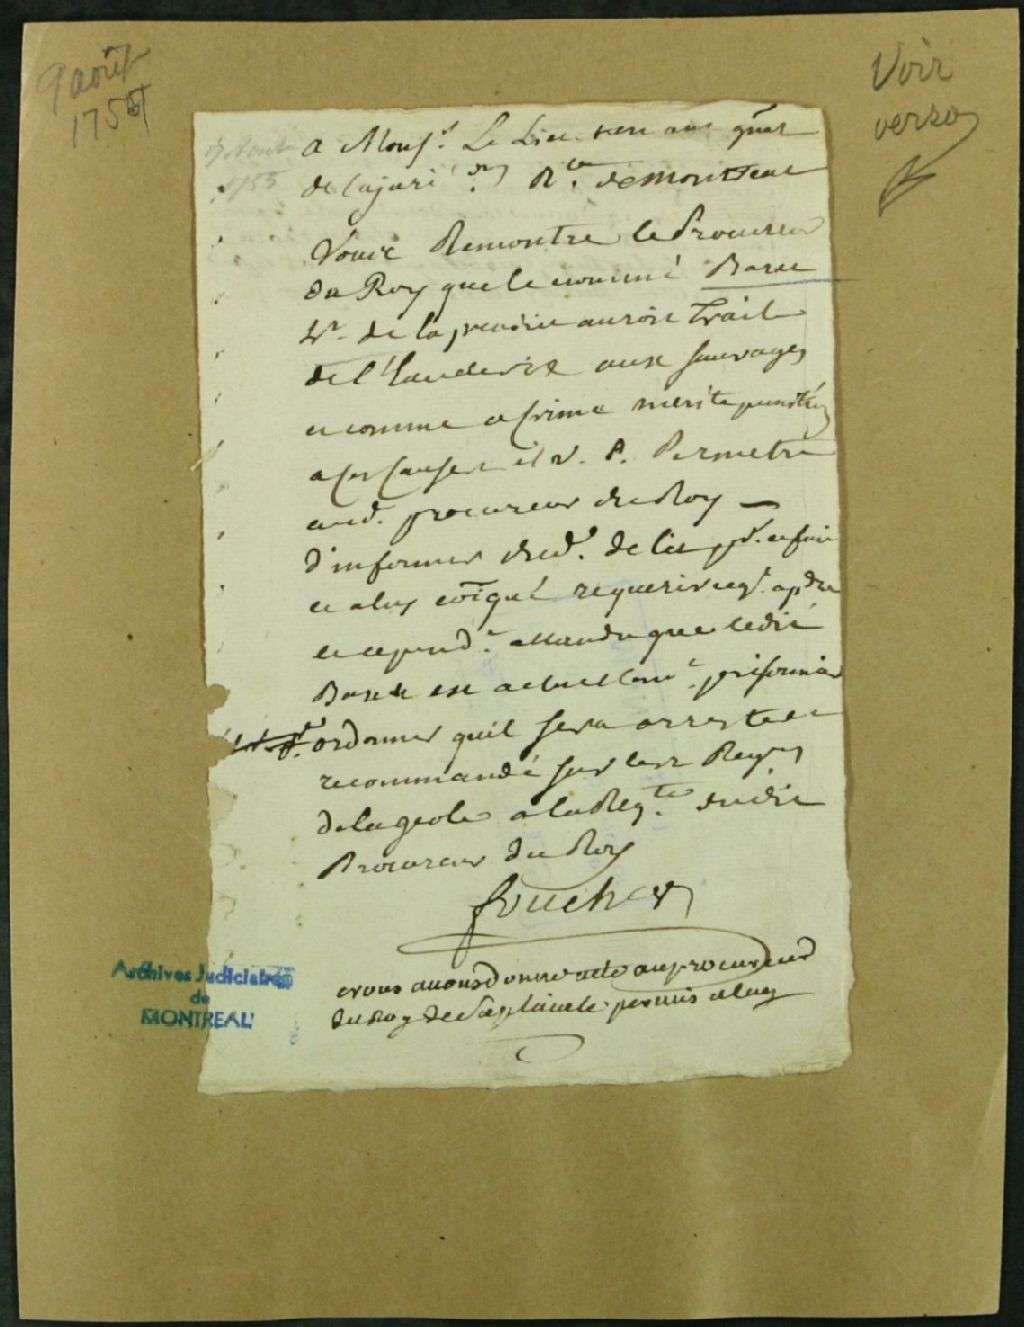 9 août
1755
Voir
verso
9 Aout
1755
A Monsr. Le Lieutenant gnal
de la juri on Rle de Montreal
Vous Remontre le Procureur
du Roy que le nommé Barse
hr. de la prairie auroit traité
de l'Eaudevie aux Sauvages
et comme ce Crime merite punition
a Ces Causes il v. P. Permetre
aud. procureur du Roy
d'informer dud.
et a luy coiqué requerir
et cepend.t attandu que ledit
Barse est actuellemt. prisonnier
ordonner quil sera arresté et
recommandé sur les Regres
de la geole a la Reqte. dudit
Procureur du Roy
foucher
nous auons donné acte au procureur
du Roy de Sa plainte permis a luy
Archives Judiciaires
de
MONTREAL